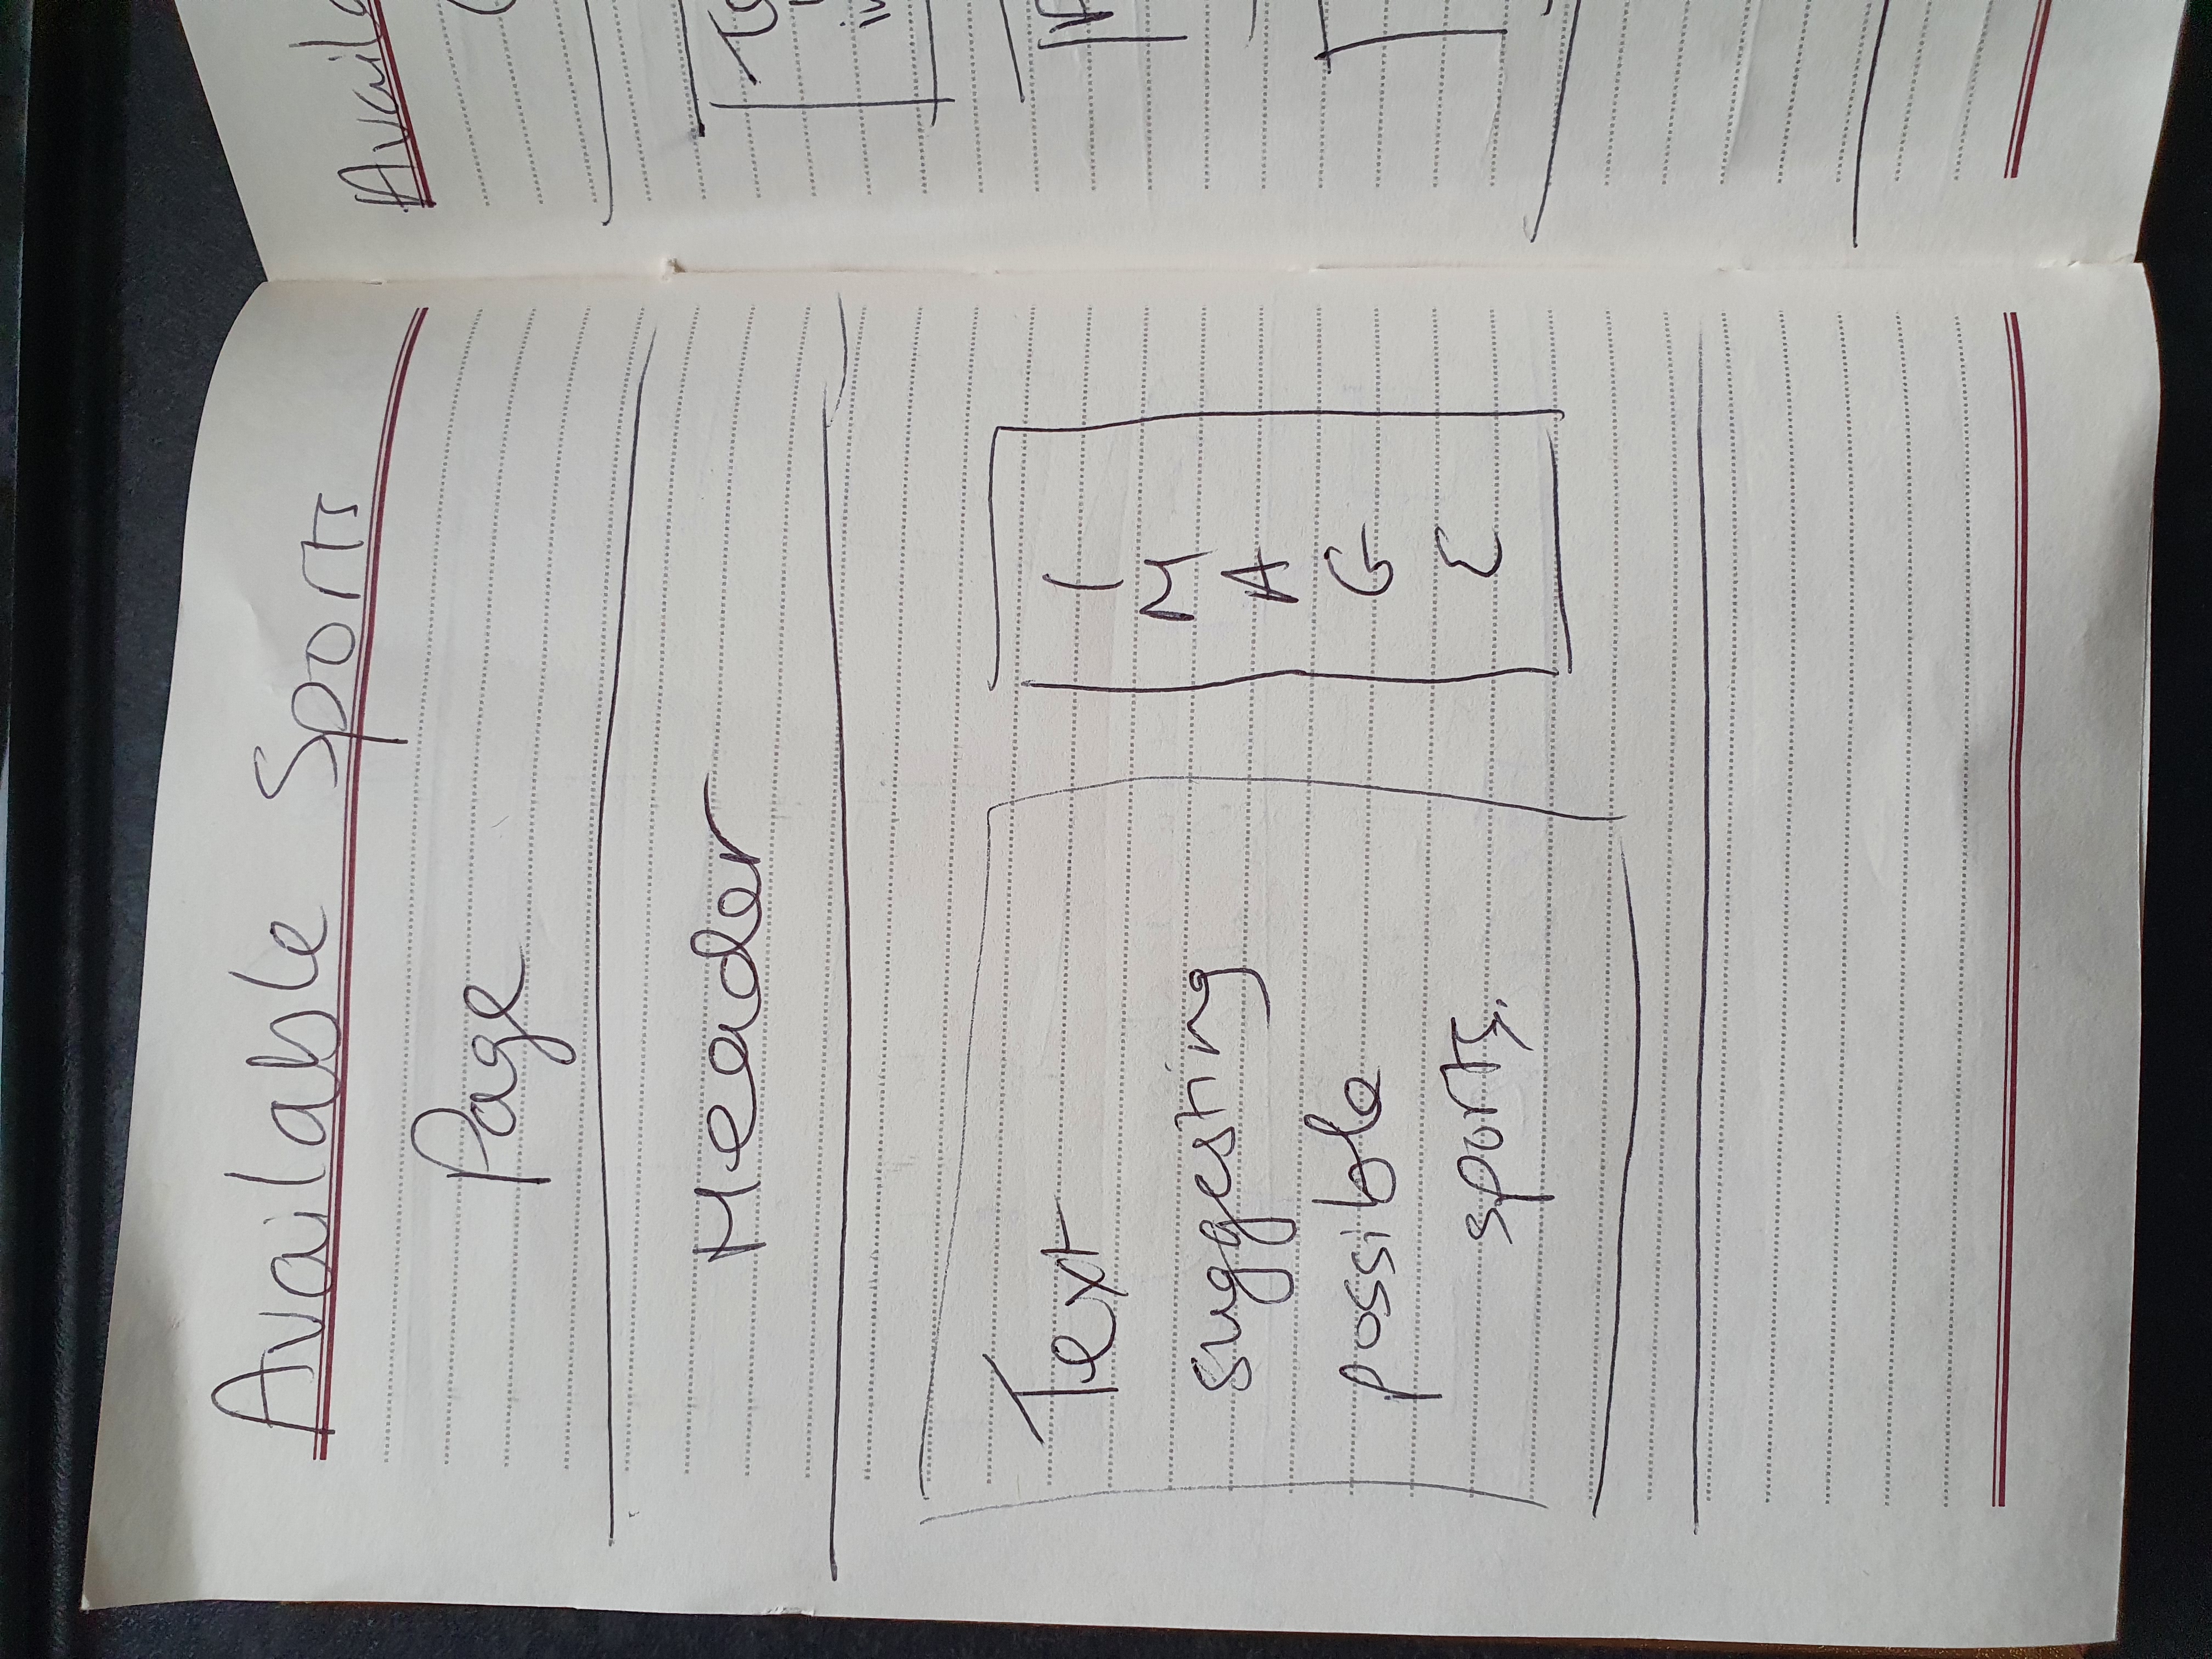 Available Sports
Page
Header
Text
suggesting
possible
sports.
I
M
A
G
E